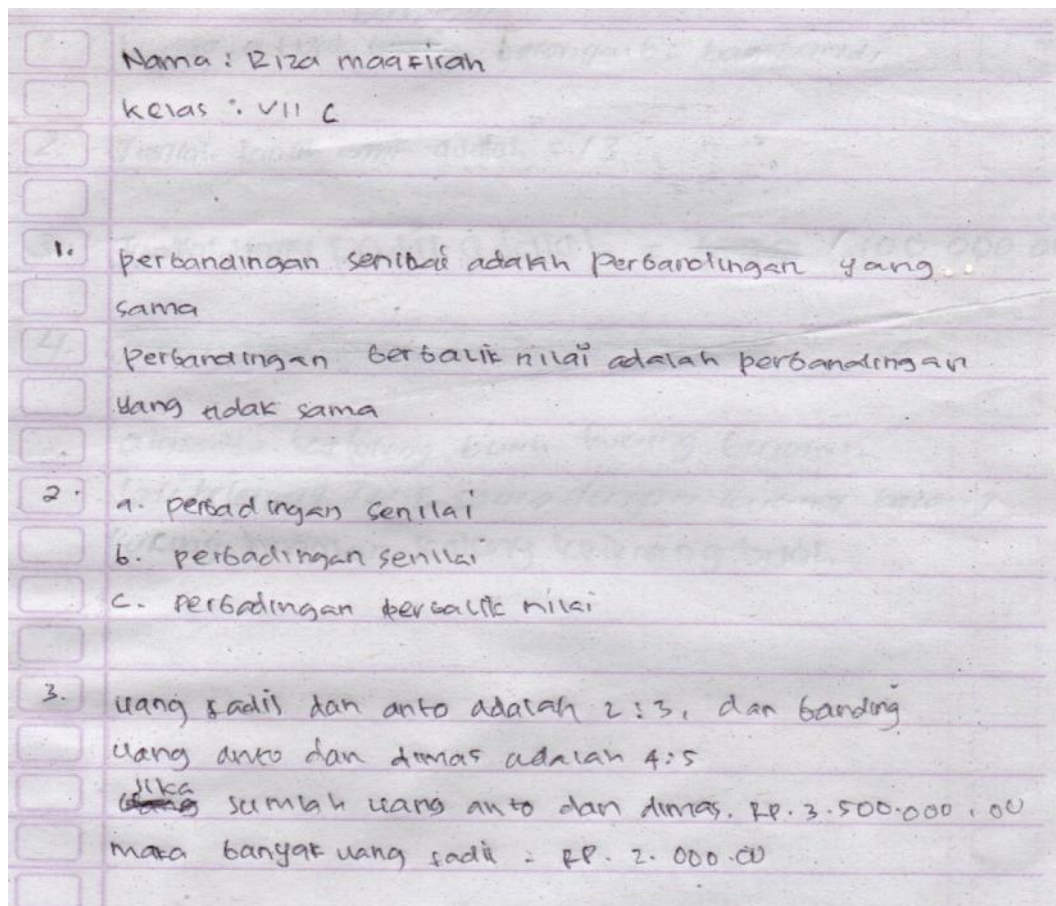 Nama : Riza maqfirah
kelas : VII C
1. perbandingan senilai adalah perbandingan yang
sama
perbandingan berbalik nilai adalah perbandingan
yang tidak sama
2. a. perbadingan senilai
b. perbadingan senilai
c. perbadingan berbalik nilai
3. uang fadil dan anto adalah 2:3, dan banding
uang anto dan dimas adalah 4:5
Jika jumlah uang anto dan dimas. RP. 3.500.000,00
maka banyak uang fadil = RP. 2.000.00